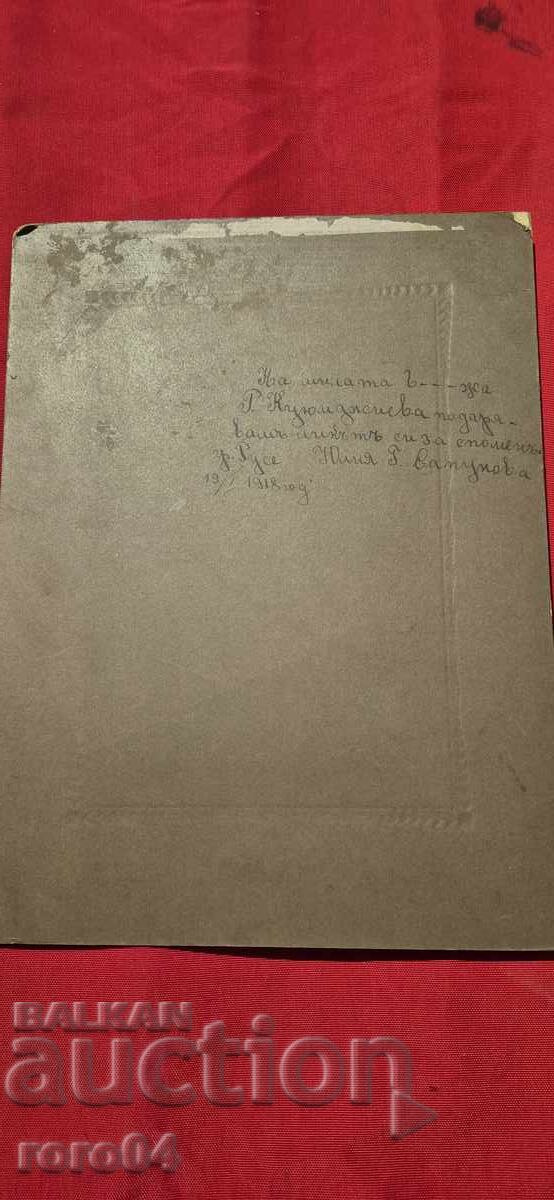 На милата Ъ---жа
Г. Куюмджиева подаря-
вамъ ликътъ си за споменъ.
гр. Русе Юлия Г. Сапунова
19/I 1918 год
BALKAN
auction
roro04